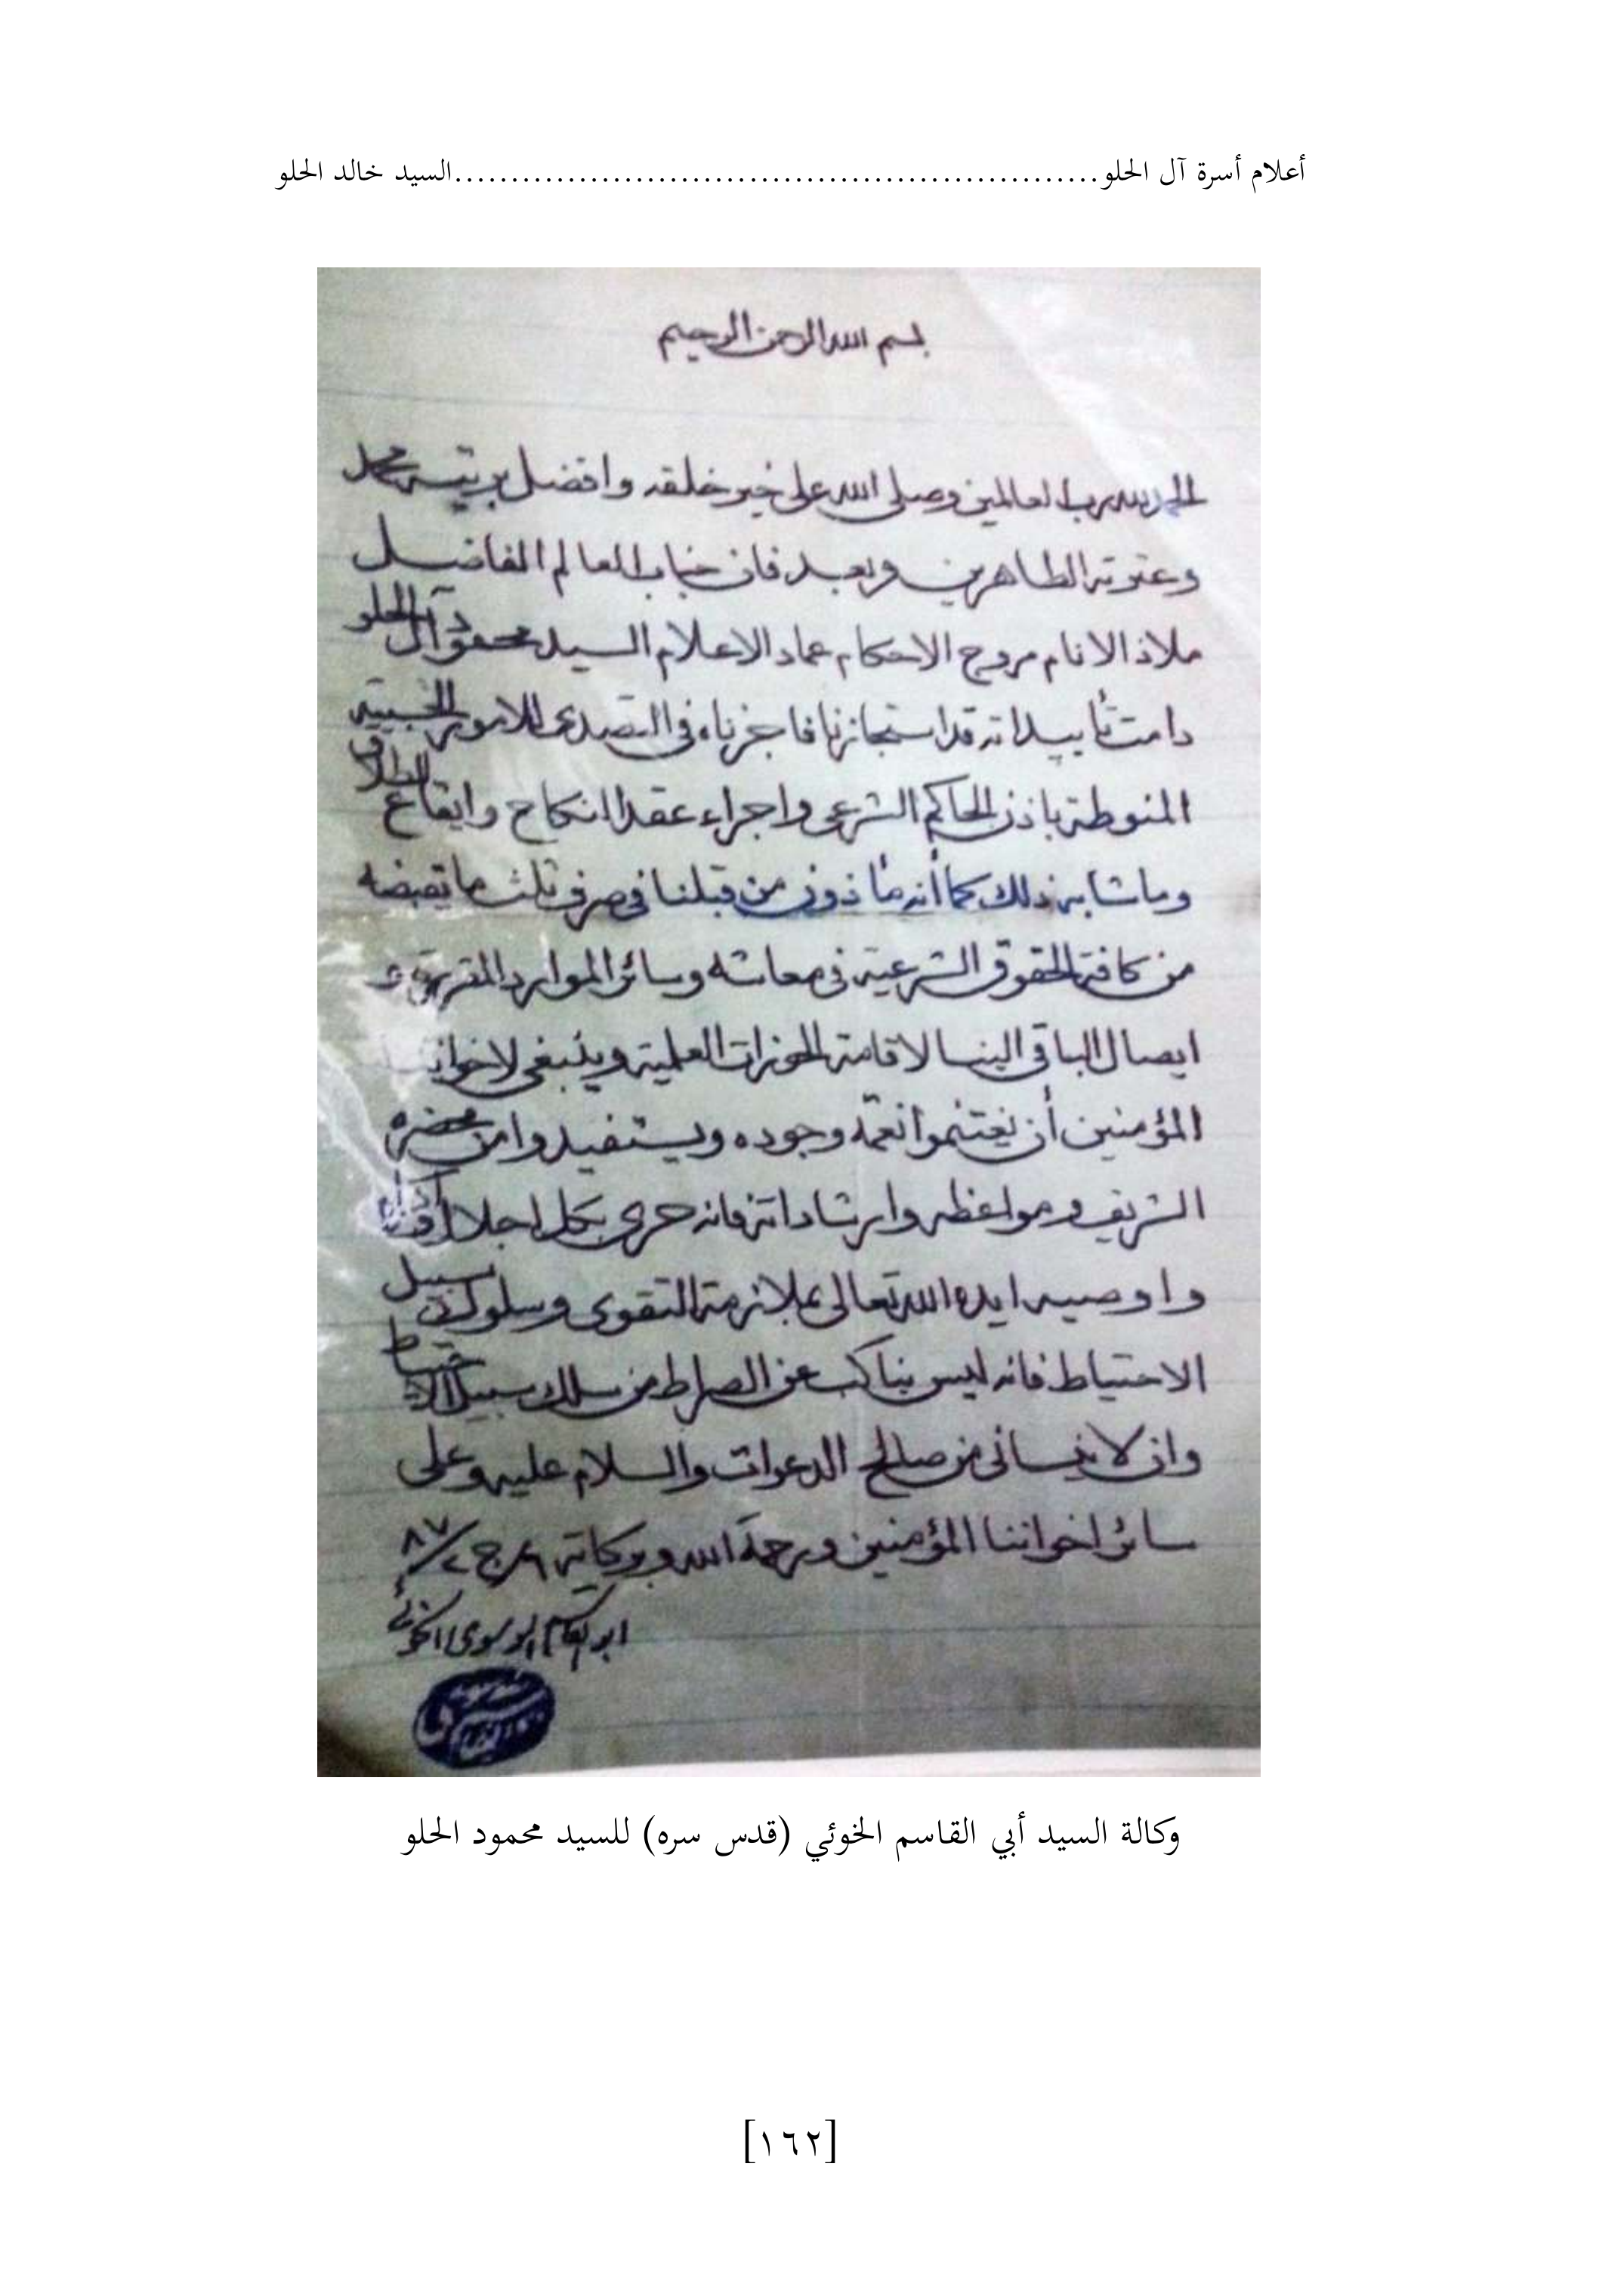 أعلام أسرة آل الحلو.........................................................السيد خالد الحلو
بسم الله الرحمن الرحيم
الحمد لله رب العالمين وصلى الله على خير خلقه وافضل بريته محمد
وعترته الطاهرين وبعد فان جناب العالم الفاضل
ملاذ الانام مروج الاحكام عماد الاعلام السيد محمود آل الحلو
دامت تأييداته قد استجازنا فاجزناه في التصدى للامور الحسبية
المنوطة باذن الحاكم الشرعى واجراء عقد النكاح وايقاع الطلاق
وما شابه ذلك كما أنه مأذون من قبلنا في صرف ثلث ما يقبضه
من كافة الحقوق الشرعية في معاشه وسائر الموارد المقررة و
ايصال الباقي الينا لاقامة الحوزات العلمية وينبغى لاخواننا
المؤمنين أن يغتنموا نعمة وجوده ويستفيدوا من محضره
الشريف ومواعظه وارشاداته فانه حرى بكل اجلال
واوصيه ايده الله تعالى بملازمة التقوى وسلوك سبيل
الاحتياط فانه ليس بناكب عن الصراط من سلك سبيل الاحتياط
وان لا ينساني من صالح الدعوات والسلام عليه وعلى
سائر اخواننا المؤمنين ورحمة الله وبركاته
ابو القاسم الموسوى الخوئي
وكالة السيد أبي القاسم الخوئي (قدس سره) للسيد محمود الحلو
[١٦٢]